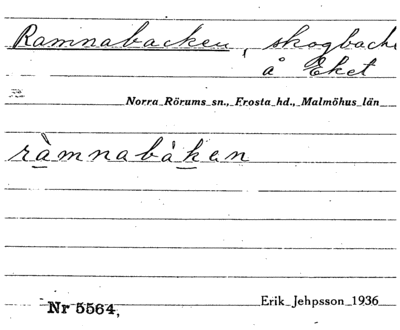 Ramnabacken, skogbacke
å Eket
Norra Rörums sn., Frosta hd., Malmöhus län
ràmnabàken
Nr 5564,
Erik Jehpsson 1936